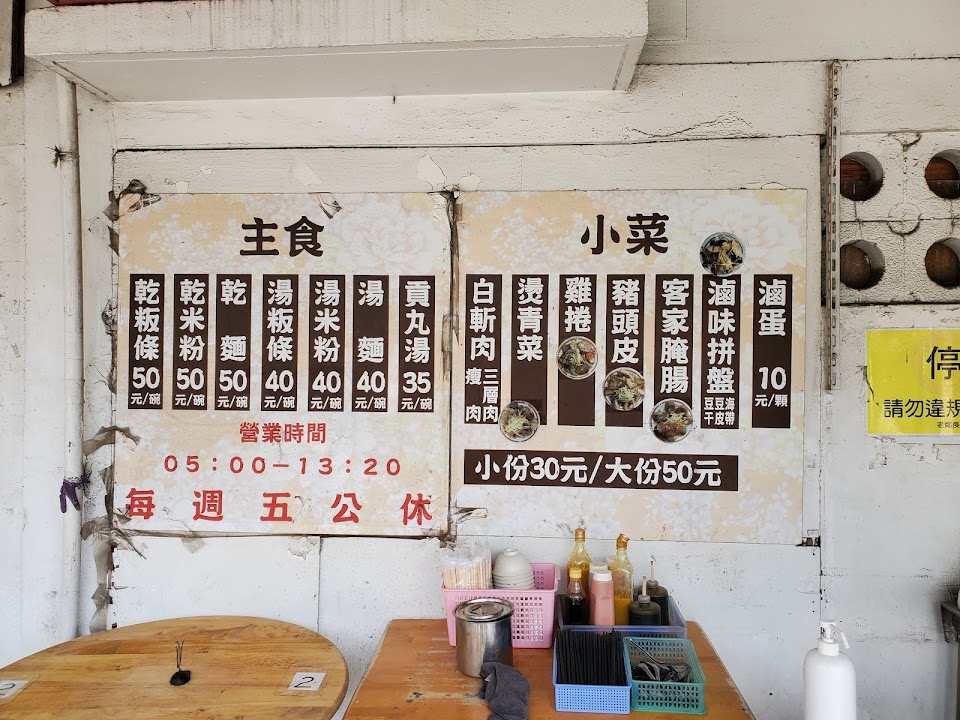 主食
乾粄條 50元/碗
乾米粉 50元/碗
乾麵 50元/碗
湯粄條 40元/碗
湯米粉 40元/碗
湯麵 40元/碗
貢丸湯 35元/碗
營業時間
05:00-13:20
每週五公休
小菜
白斬肉 瘦肉 三層肉
燙青菜
雞捲
豬頭皮
客家腌腸
滷味拼盤 豆干 豆皮 海帶
滷蛋 10元/顆
小份30元/大份50元
停
請勿違規
2
2